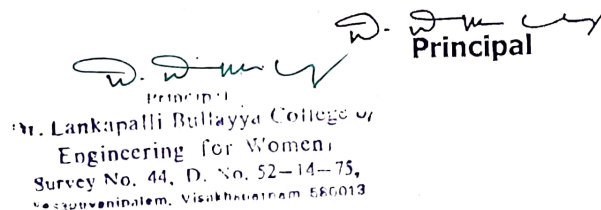 Principal
Principal
Dr. Lankapalli Bullayya College of
Engineering for Women,
Survey No. 44, D. No. 52-14-75,
Visakhapatnam 530013